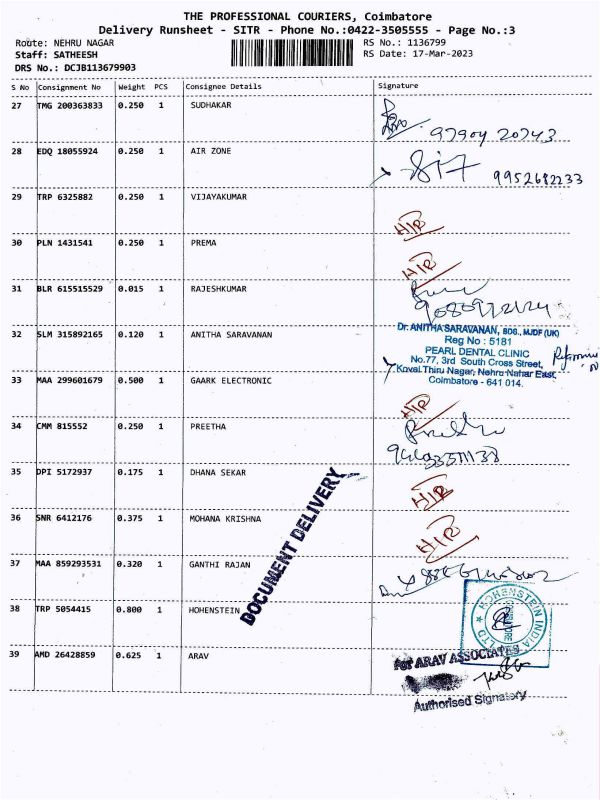 THE PROFESSIONAL COURIERS, Coimbatore
Delivery Runsheet - SITR - Phone No.:0422-3505555 - Page No.:3
Route: NEHRU NAGAR
RS No.: 1136799
Staff: SATHEESH
RS Date: 17-Mar-2023
DRS No.: DCJB113679903
S No Consignment No Weight PCS Consignee Details Signature
27 TMG 200363833 0.250 1 SUDHAKAR
97904 20743
28 EDQ 18055924 0.250 1 AIR ZONE
9952682233
29 TRP 6325882 0.250 1 VIJAYAKUMAR
H/R
30 PLN 1431541 0.250 1 PREMA
H/R
31 BLR 615515529 0.015 1 RAJESHKUMAR
32 SLM 315892165 0.120 1 ANITHA SARAVANAN
Dr. ANITHA SARAVANAN, BDS., MJDF (UK)
Reg No : 5181
PEARL DENTAL CLINIC
No.77, 3rd South Cross Street,
Koval Thiru Nagar, Nehru Nahar East,
Coimbatore - 641 014.
33 MAA 299601679 0.500 1 GAARK ELECTRONIC
H/R
34 CMM 815552 0.250 1 PREETHA
Preetha
35 DPI 5172937 0.175 1 DHANA SEKAR
H/R
36 SNR 6412176 0.375 1 MOHANA KRISHNA
H/R
37 MAA 859293531 0.320 1 GANTHI RAJAN
38 TRP 5054415 0.800 1 HOHENSTEIN
DOCUMENT DELIVERY
HOHENSTEIN INDIA
LTD
39 AMD 26428859 0.625 1 ARAV
for ARAV ASSOCIATES
Authorised Signatory